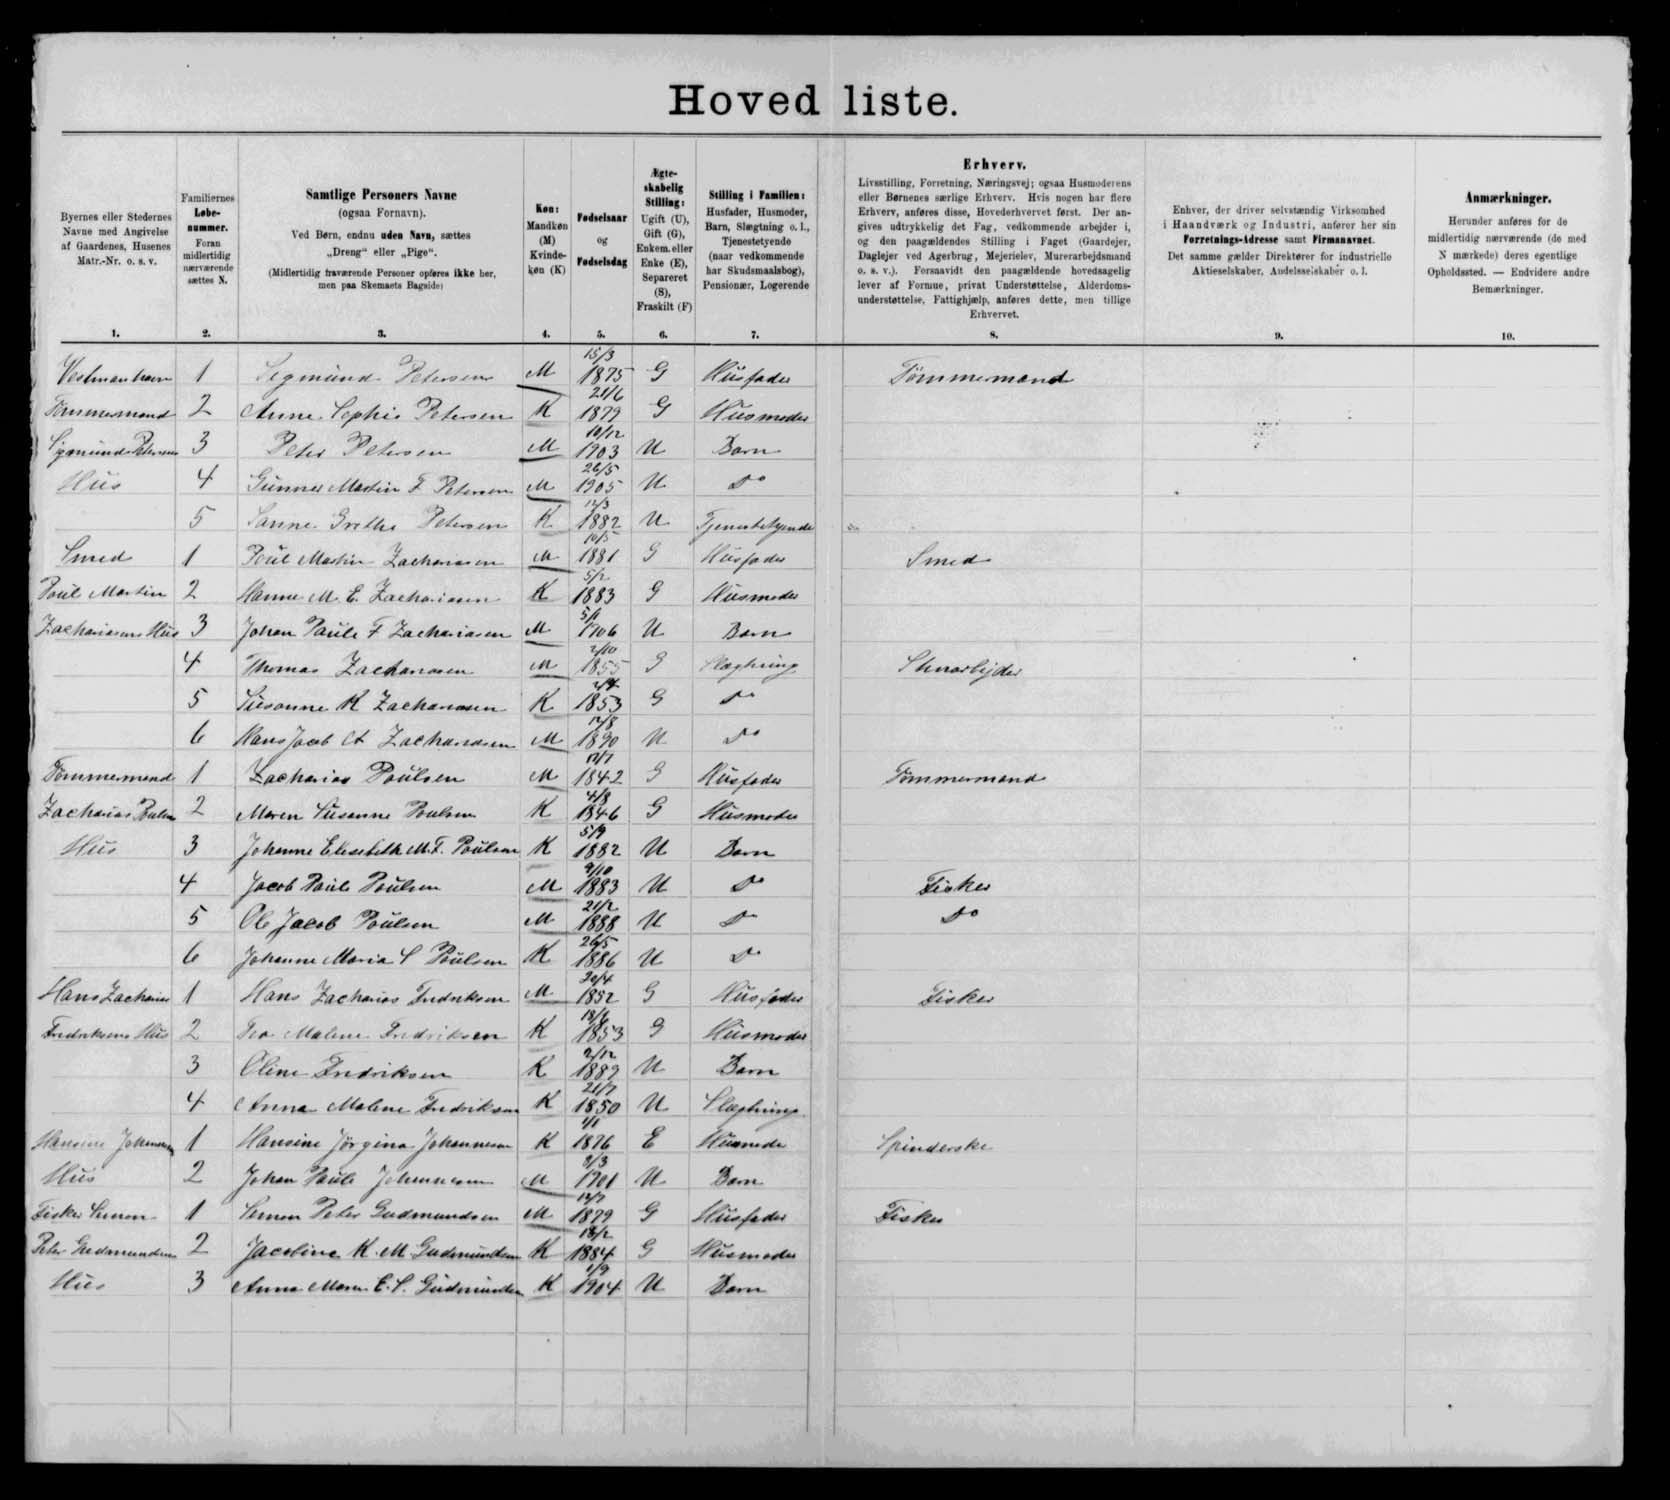 Hoved liste.
Byernes eller Stedernes Navne med Angivelse af Gaardenes, Husenes Matr.-Nr. o. s. v.
Familiernes Løbenummer. Foran midlertidig nærværende sættes N.
Samtlige Personers Navne
(ogsaa Fornavn).
Ved Børn, endnu uden Navn, sættes
„Dreng“ eller „Pige“.
(Midlertidig fraværende Personer opføres ikke her, men paa Skemaets Bagside)
Køn: Mandkøn (M) Kvindekøn (K)
Fødselsaar og Fødselsdag
Ægteskabelig Stilling: Ugift (U), Gift (G), Enkem. eller Enke (E), Separeret (S), Fraskilt (F)
Stilling i Familien: Husfader, Husmoder, Barn, Slægtning o. l., Tjenestetyende (naar vedkommende har Skudsmaalsbog), Pensionær, Logerende
Erhverv.
Livsstilling, Forretning, Næringsvej; ogsaa Husmoderens
eller Børnenes særlige Erhverv. Hvis nogen har flere
Erhverv, anføres disse, Hovederhvervet først. Der an-
gives udtrykkelig det Fag, vedkommende arbejder i,
og den paagældendes Stilling i Faget (Gaardejer,
Daglejer ved Agerbrug, Mejerielev, Murerarbejdsmand
o. s. v.). Forsaavidt den paagældende hovedsagelig
lever af Formue, privat Understøttelse, Alderdoms-
understøttelse, Fattighjælp, anføres dette, men tillige
Erhvervet.
Enhver, der driver selvstændig Virksomhed
i Haandværk og Industri, anfører her sin
Forretnings-Adresse samt Firmanavnet.
Det samme gælder Direktører for industrielle
Aktieselskaber, Andelsselskaber o. l.
Anmærkninger.
Herunder anføres for de
midlertidig nærværende (de med
N mærkede) deres egentlige
Opholdssted. — Endvidere andre
Bemærkninger.
1. 2. 3. 4. 5. 6. 7. 8. 9. 10.
Vestmanhavn 1 Sigmund Petersen M 15/3 1875 G Husfader Tömmermand
Tömmermand 2 Anne Sophie Petersen K 21/6 1879 G Husmoder
Sigmund Petersens 3 Peter Petersen M 10/12 1903 U Barn
Hus 4 Gunner Martin F Petersen M 26/5 1905 U Do
5 Sanne Grethe Petersen K 12/3 1882 U Tjenestetyende
Smed 1 Poul Martin Zachariasen M 10/5 1881 G Husfader Smed
Poul Martin 2 Hanne M. E. Zachariasen K 5/2 1883 G Husmoder
Zachariasens Hus 3 Johan Paule F Zachariasen M 5/1 1906 U Barn
4 Thomas Zachariasen M 2/10 1855 G Slægtning Stenarbejder
5 Susanne K Zachariasen K 1853 G Do
6 Hans Jacob A Zachariasen M 12/8 1890 U Do
Tömmermand 1 Zacharias Poulsen M 17/7 1842 G Husfader Tömmermand
Zacharias Poulsen 2 Maren Susanne Poulsen K 4/8 1846 G Husmoder
Hus 3 Johanne Elisebeth M. F. Poulsen K 5/9 1882 U Barn
4 Jacob Paule Poulsen M 9/10 1883 U Do Fisker
5 Ole Jacob Poulsen M 21/2 1888 U Do Do
6 Johanne Maria S Poulsen K 26/5 1886 U Do
Hans Zacharias 1 Hans Zacharias Fredriksen M 20/4 1852 G Husfader Fisker
Fredriksens Hus 2 Malene Fredriksen K 18/6 1853 G Husmoder
3 Oline Fredriksen K 2/12 1889 U Barn
4 Anna Malene Fredriksen K 21/7 1850 U Slægtning
Hansine Johannesen 1 Hansine Jörgina Johannesen K 1/1 1876 E Husmoder Spinderske
Hus 2 Johan Paule Johannesen M 9/3 1901 U Barn
Fisker Simon 1 Simon Peter Gudmundsen M 12/7 1879 G Husfader Fisker
Peter Gudmundsens 2 Jacobine K. M Gudmundsen K 18/2 1884 G Husmoder
Hus 3 Anna Maria E. S. Gudmundsen K 1/9 1904 U Barn